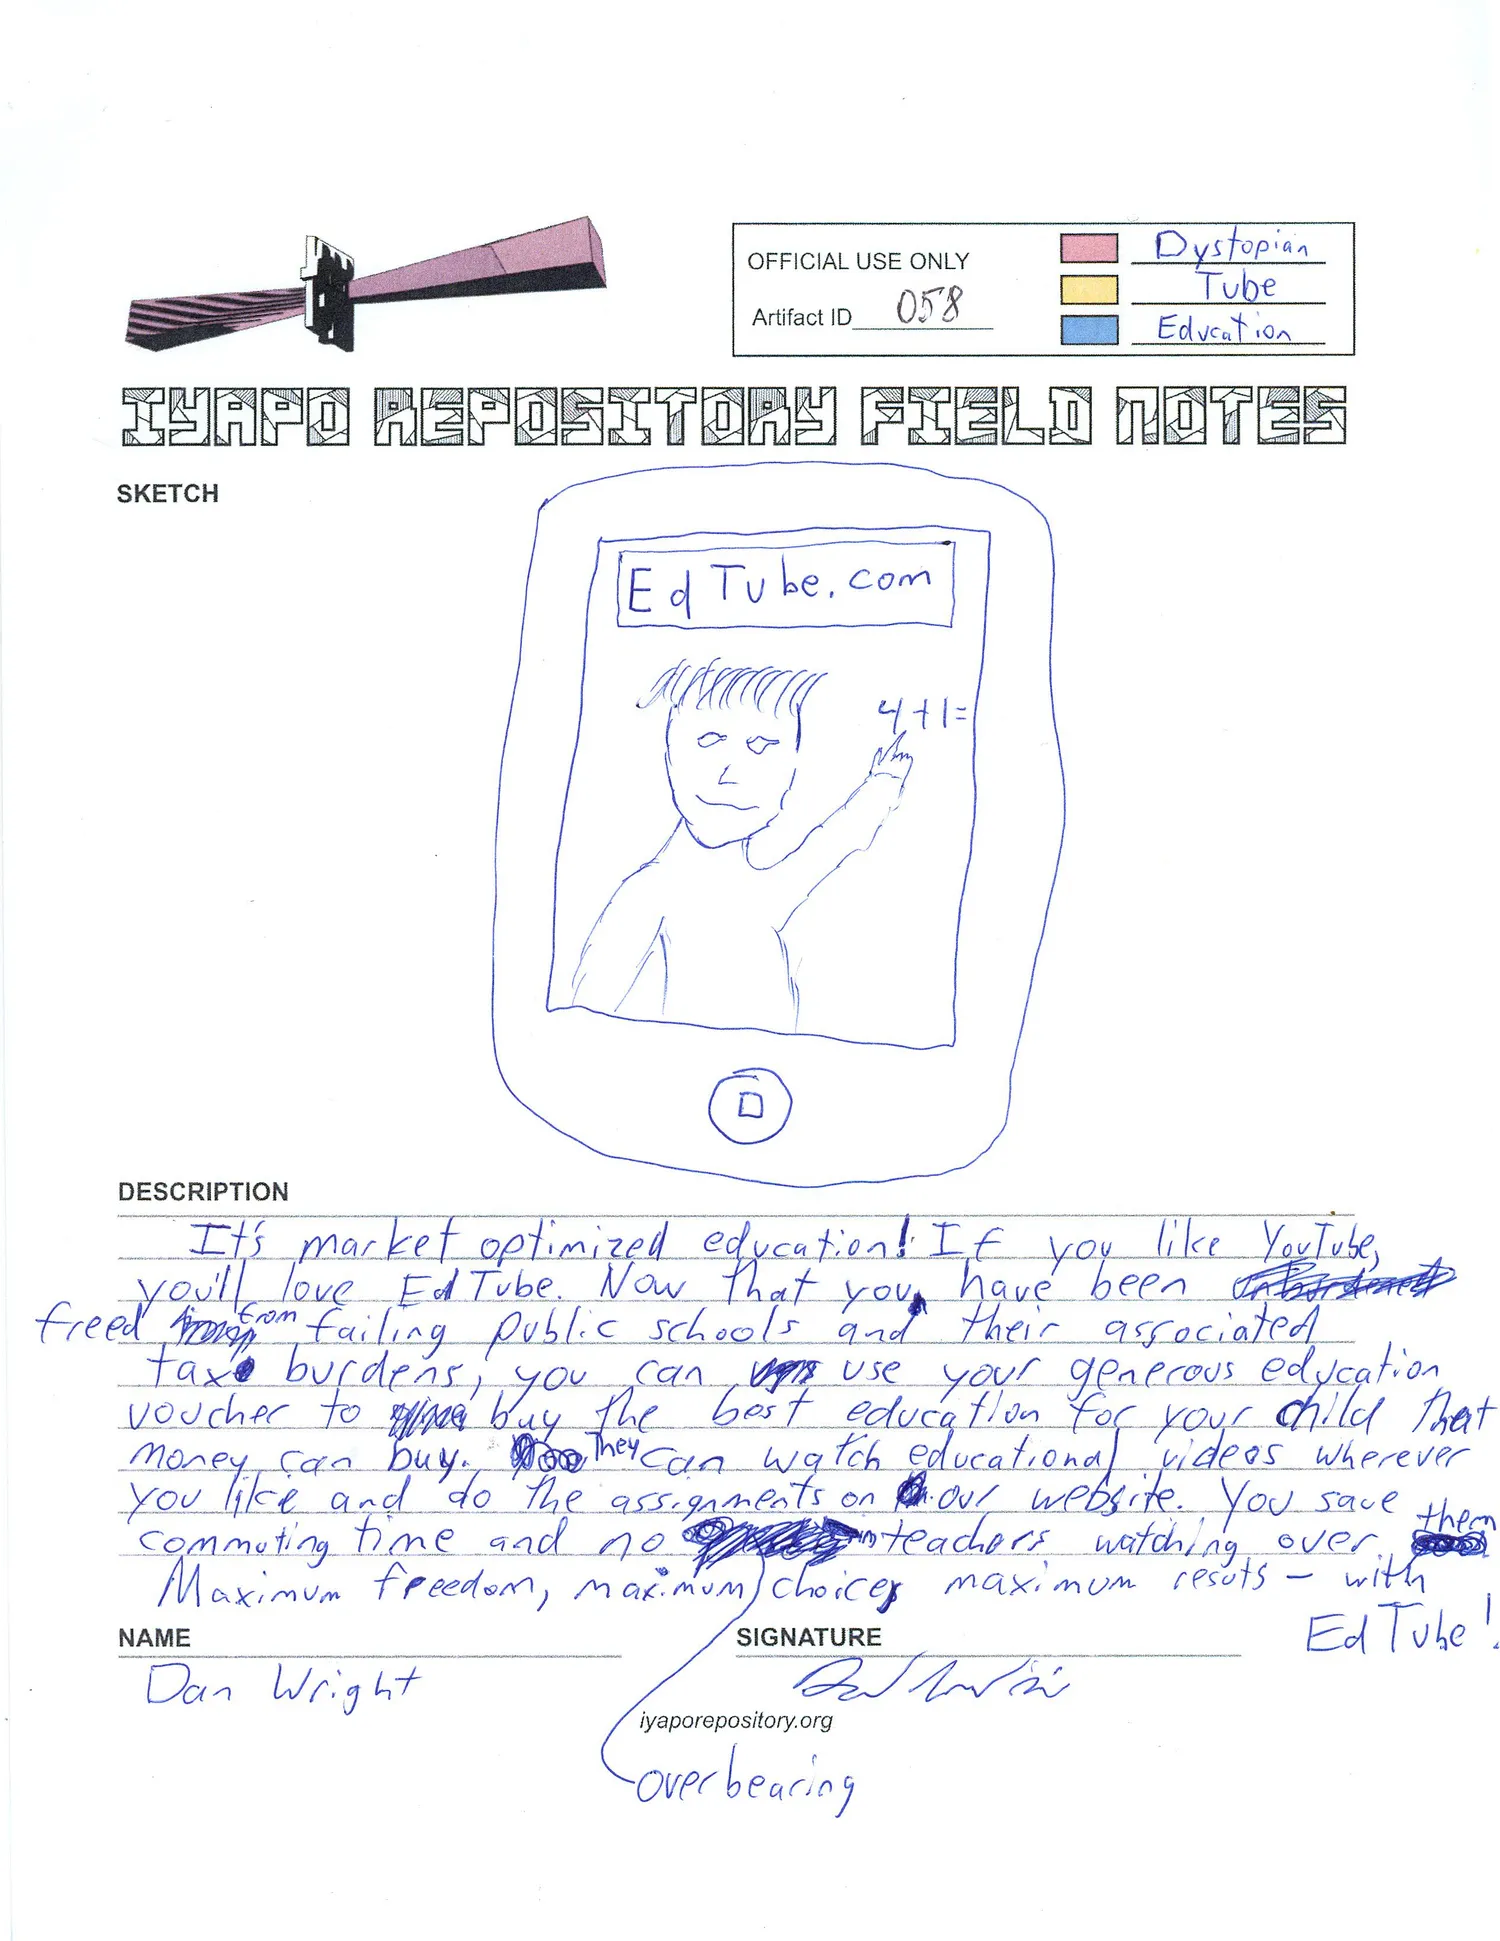 OFFICIAL USE ONLY
Artifact ID 058
Dystopian
Tube
Education
IYAPO REPOSITORY FIELD NOTES
SKETCH
EdTube.com
4+1=
DESCRIPTION
It's market optimized education! If you like YouTube,
you'll love EdTube. Now that you have been
freed from failing public schools and their associated
tax burdens, you can use your generous education
voucher to buy the best education for your child that
money can buy. They can watch educational videos wherever
you like and do the assignments on our website. You save
commuting time and no overbearing teachers watching over them
Maximum freedom, maximum choice, maximum resuts – with
EdTube!
NAME
Dan Wright
SIGNATURE
iyaporepository.org